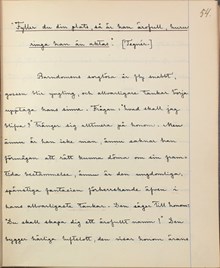 54.
"Fyller du din plats, så är han ärofull, huru
ringa han än aktas". [Tegnér].
Barndomens sorgfria är fly snabbt,
gossen blir yngling, och allvarligare tankar börja
upptaga hans sinne. Frågan "hvad skall jag
blifva?" tränger sig alltmera på honom. Men
ännu är han icke man, ännu saknar han
förmågan att rätt kunna döma om sin fram-
tida bestämmelse, ännu är den ungdomliga,
spänstiga fantasien förherrskande äfven i
hans allvarligaste tankar. Den säger till honom:
"Du skall skapa dig ett ärofullt namn!" Den
bygger härliga luftslott, den visar honom ärans